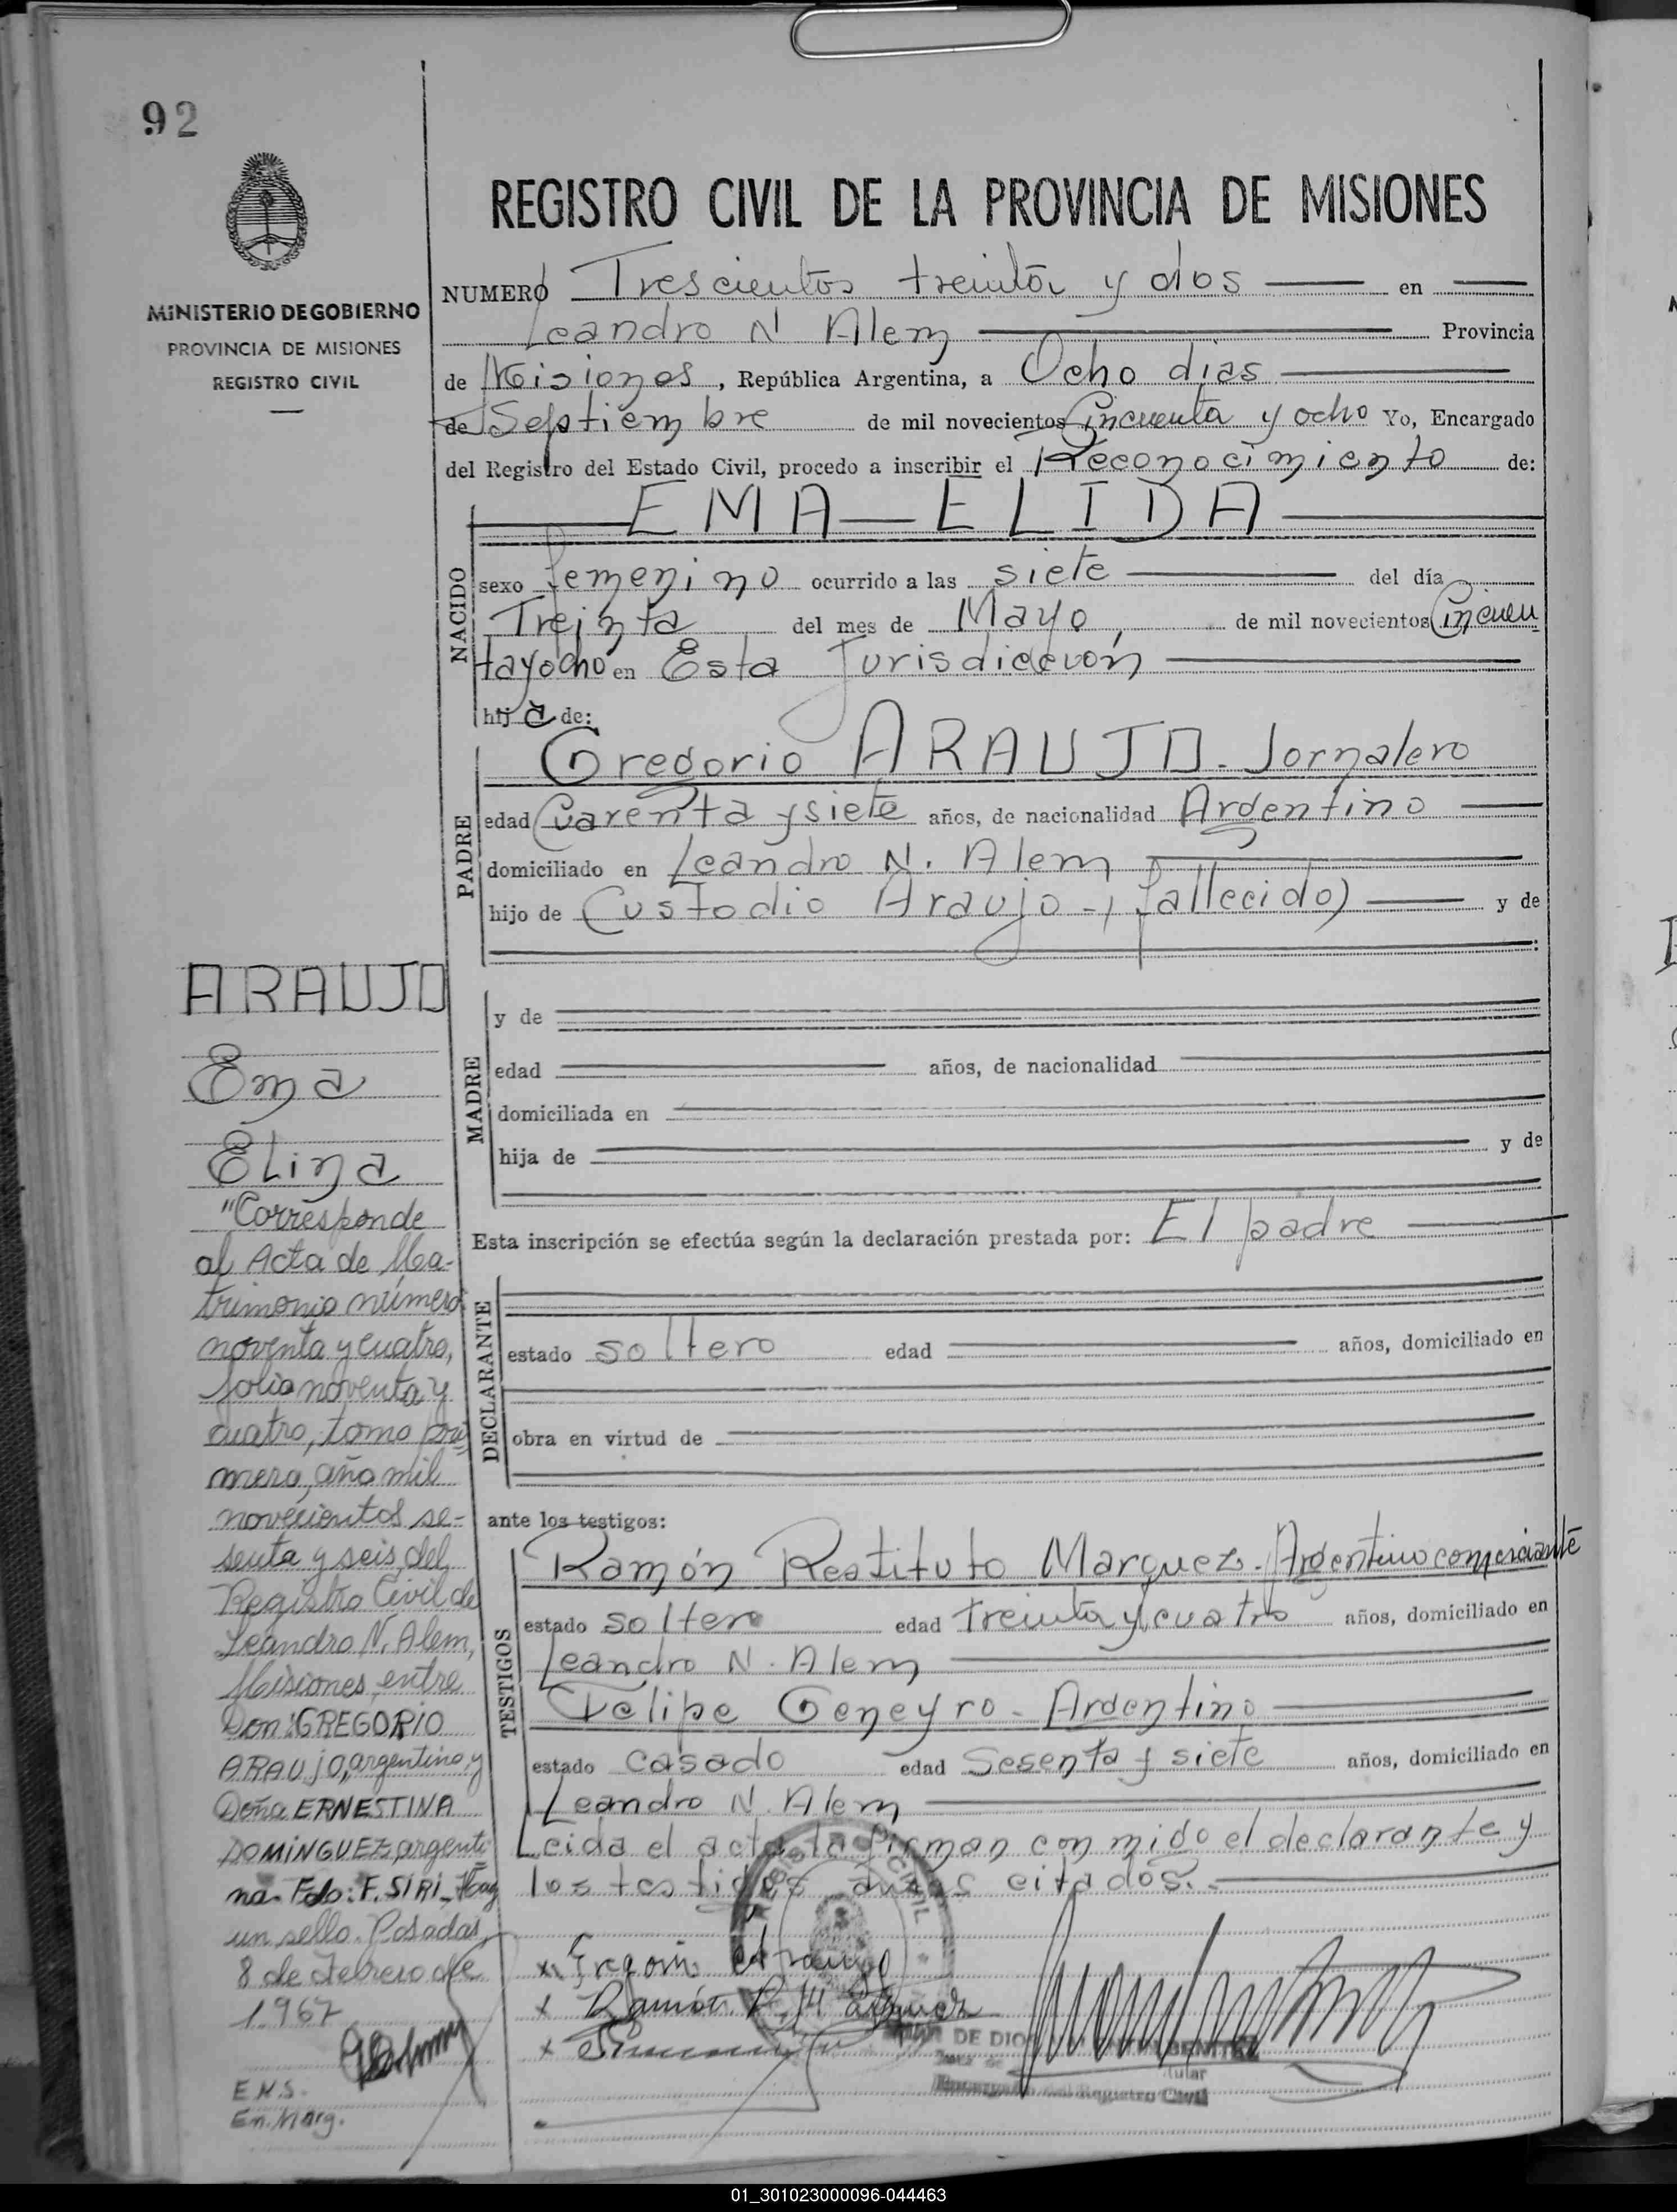 92
MINISTERIO DE GOBIERNO
PROVINCIA DE MISIONES
REGISTRO CIVIL
REGISTRO CIVIL DE LA PROVINCIA DE MISIONES
NUMERO Trescientos treinta y dos en
Leandro N Alem Provincia
de Misiones, República Argentina, a Ocho dias
de Septiembre de mil novecientos Cincuenta y ocho Yo, Encargado
del Registro del Estado Civil, procedo a inscribir el Reconocimiento de:
NACIDO
EMA ELIDA
sexo femenino ocurrido a las siete del día
Treinta del mes de Mayo, de mil novecientos Cincuen
tayocho en Esta Jurisdicción
hija de:
PADRE
Gregorio ARAUJO - Jornalero
edad Cuarenta y siete años, de nacionalidad Argentino
domiciliado en Leandro N. Alem
hijo de Custodio Araujo - (fallecido) y de
MADRE
y de
edad años, de nacionalidad
domiciliada en
hija de y de
Esta inscripción se efectúa según la declaración prestada por: El padre
DECLARANTE
estado soltero edad años, domiciliado en
obra en virtud de
ante los testigos:
TESTIGOS
Ramón Restituto Marquez - Argentino comerciante
estado soltero edad treinta y cuatro años, domiciliado en
Leandro N. Alem
Felipe Geneyro - Argentino
estado casado edad Sesenta y siete años, domiciliado en
Leandro N. Alem
Leida el acta la firman con migo el declarante y
los testigos antes citados.-
x Gregorio Araujo
x Ramón R. Marquez
x
REGISTRO CIVIL
DE DIOS BENITEZ
Titular
Encargado del Registro Civil
ARAUJO
Ema
Elina
"Corresponde
al Acta de Ma-
trimonio número
noventa y cuatro,
folio noventa y
cuatro, tomo pri
mero, año mil
novecientos se-
senta y seis, del
Registro Civil de
Leandro N. Alem,
Misiones, entre
Don: GREGORIO
ARAUJO, argentino y
Doña ERNESTINA
DOMINGUEZ, argenti
na. Fdo: F. SIRI - Hay
un sello. Posadas,
8 de Febrero de
1967
E.N.S.
En. Marg.
01_301023000096-044463